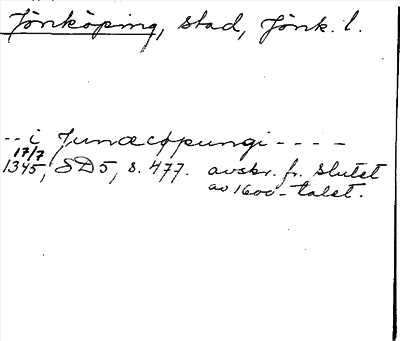 Jönköping, stad, Jönk. l.
-- i Junæcøpungi ----
17/7
1345, SD5, s. 477. avskr. fr. slutet
av 1600-talet.